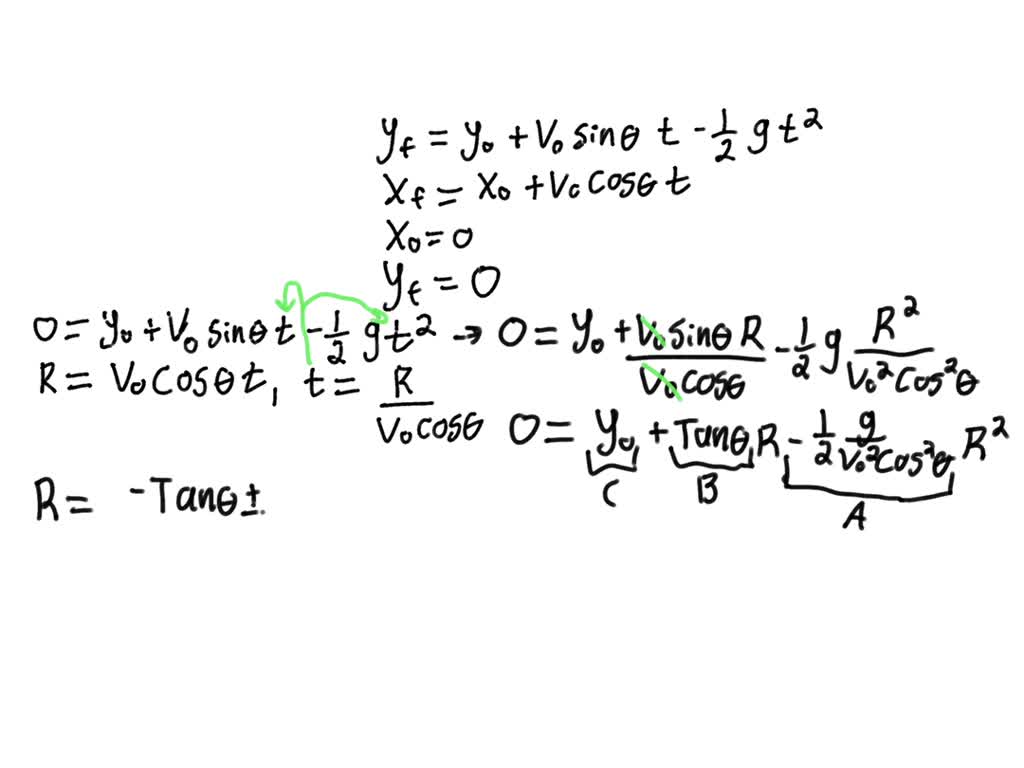 y_f = y_0 + V_0 sinθ t - 1/2 g t²
X_f = X_0 + V_0 Cosθ t
X_0 = 0
y_f = 0
0 = y_0 + V_0 sinθ t - 1/2 g t² → 0 = y_0 + V_0 sinθ R / V_0 cosθ - 1/2 g R² / V_0² Cos²θ
R = V_0 Cosθ t, t = R / V_0 cosθ
0 = y_0 + Tanθ R - 1/2 g / V_0² Cos²θ R²
C B A
R = -Tanθ ±